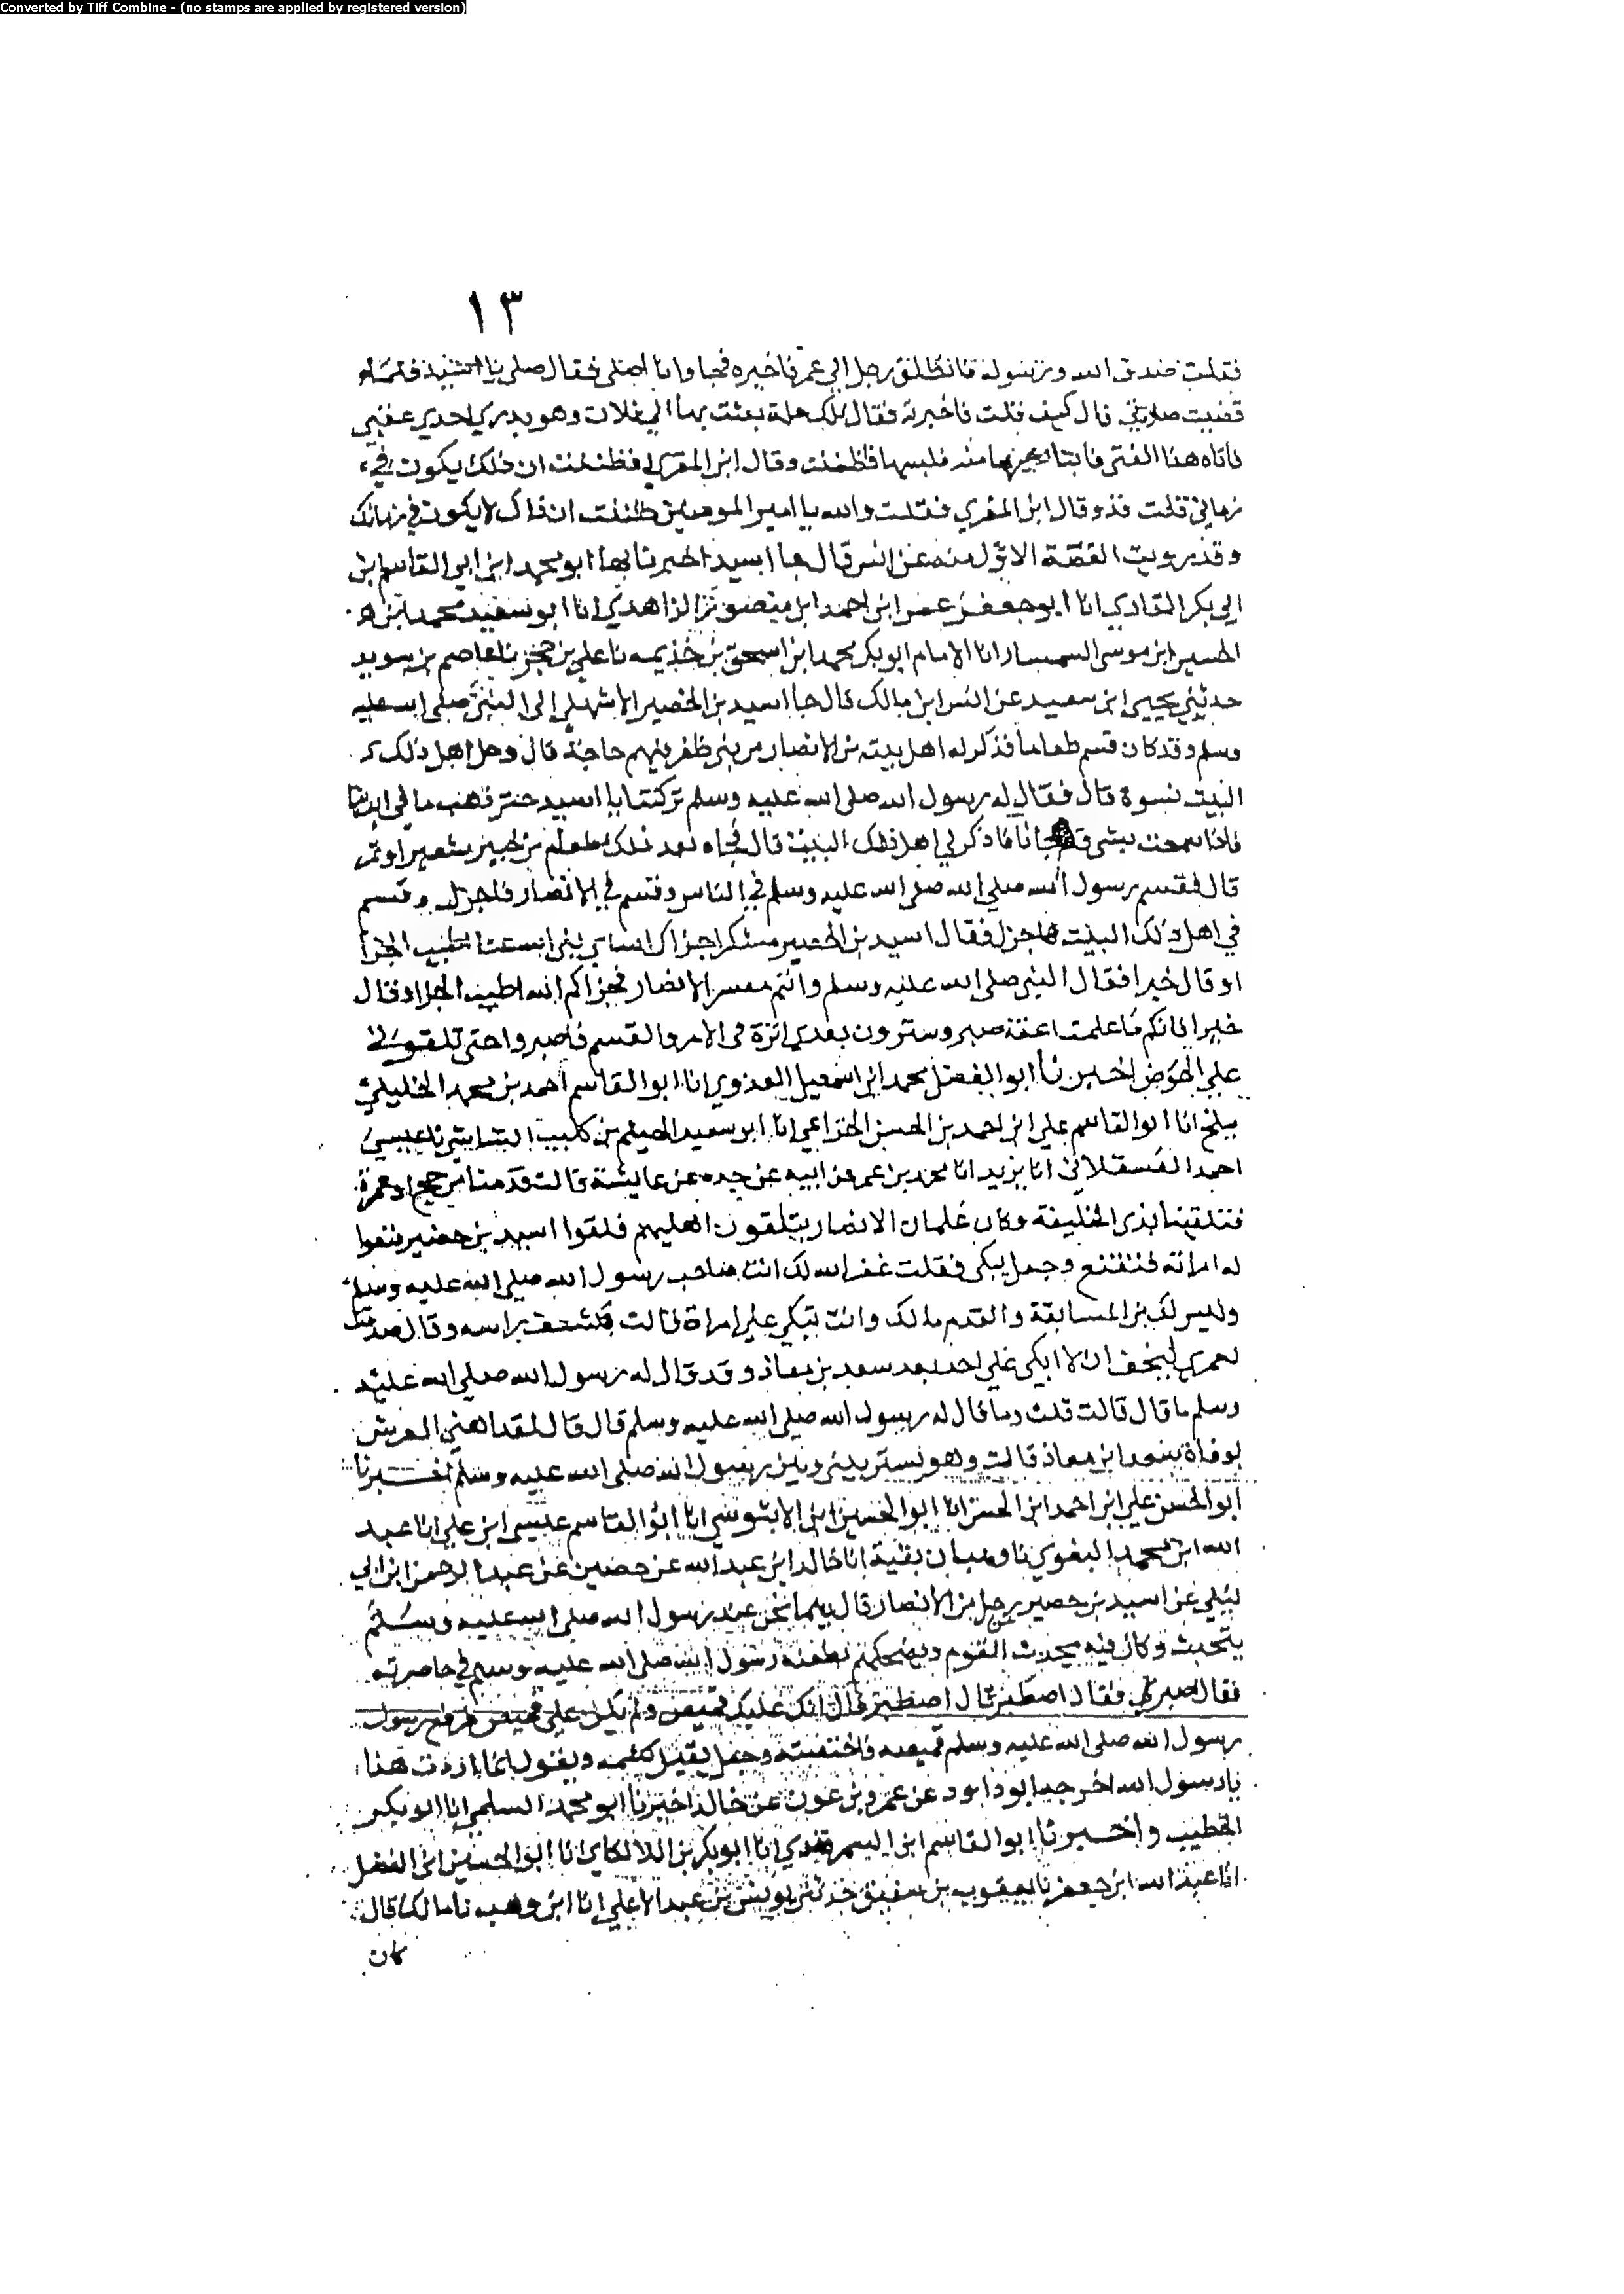 Converted by Tiff Combine - (no stamps are applied by registered version)
١٣
فقلت صدق الله ورسوله فانطلق رجل الى عمر فاخبره فجا وانا اصلى فقال صلى يا اسيد فلما
قضيت صلاتي قال كيف قلت فاخبرته فقال تلك حلة بعثت بها الى فلان وهو بدري احدي عقبي
فاتاه هذا الفتى فابتاعها منه فلبسها فظننت وقال ابن المقري فظننت ان ذلك يكون في
زماني قلت قد وقال ابن المقري فقلت والله يا امير المومنين ظننت ان ذاك لا يكون في زمانك
وقد رويت القصة الاولى منه عن انس قال جا اسيد اخبرنا بها ابو محمد ابن ابي القاسم ابن
ابي بكر القاري انا ابو حفص عمر ابن احمد ابن منصور الزاهدي انا ابو سعيد محمد ابن
الحسين ابن موسى السمسار انا الامام ابو بكر محمد ابن اسحق بن خذيمه نا علي بن حجر نا عاصم بن سويد
حدثني يحيى ابن سعيد عن انس ابن مالك قال جا اسيد بن الحضير الاشهلي الى النبي صلى الله عليه
وسلم وقد كان قسم طعاما فذكر له اهل بيته من الانصار من بني ظفر فيهم حاجة قال وجل اهل ذلك
البيت نسوة قال فقال له رسول الله صلى الله عليه وسلم تركتنا يا اسيد حتى ذهب ما في ايدينا
فاذا سمعت بشي قد جانا فاذكر لي اهل ذلك البيت قال فجاه بعد ذلك طعام من خبير شعير او تمر
قال فقسم رسول الله صلى الله صلى الله عليه وسلم في الناس وقسم في الانصار فاجزل وقسم
في اهل ذلك البيت فاجزل فقال اسيد بن الحضير متشكرا جزاك الله اي نبي الله عنا اطيب الجزا
او قال خيرا فقال النبي صلى الله عليه وسلم وانتم معسر الانصار فجزاكم الله اطيب الجزا وقال
خيرا فانكم ما علمت اعفة صبر وسترون بعدي اثرة في الامر والقسم فاصبروا حتى تلقوني
على الحوض اخبرنا ابو الفضل محمد ابن اسمعيل الفضيلي انا ابو القاسم احمد بن محمد الخليلي
ببلخ انا ابو القاسم علي ابن احمد بن الحسن الخزاعي انا ابو سعيد الهيثم بن كليب الشاشي نا عيسى
احمد العسقلاني انا يزيد انا محمد بن عمر عن ابيه عن جده عن عايشة قالت قدمنا من حج او عمرة
فتلقينا بذي الحليفة وكان غلمان الانصار يتلقون اهليهم فلقوا اسيد بن حضير فنعوا
له امراته فتقنع وجعل يبكي فقلت غفر الله لك انت صاحب رسول الله صلى الله عليه وسلم
وليس لك من المسابقة والقدم مالك وانت تبكي على امراة قالت فكشف براسه وقال صدقت
لعمري ليخف ان لا ابكي على احد بعد سعد بن معاذ وقد قال له رسول الله صلى الله عليه
وسلم ما قال قالت قلت وما قال له رسول الله صلى الله عليه وسلم قال قال لقد اهتز العرش
لوفاة سعد ابن معاذ قالت وهو يستر بيني وبين رسول الله صلى الله عليه وسلم اخبرنا
ابو الحسن علي ابن احمد ابن الحسن انا ابو الحسين ابن الابنوسي انا ابو القاسم عيسى ابن علي انا عبد
الله ابن محمد البغوي نا وهبان بقية انا خالد ابن عبد الله عن حصين عن عبد الرحمن ابن ابي
ليلى عن اسيد بن حضير رجل من الانصار قال بينما نحن عند رسول الله صلى الله عليه وسلم
يتحدث وكان فيه يحدث القوم ويضحكهم فطعنه رسول الله صلى الله عليه وسلم في خاصرته
فقال اصبرني فقال اصطبر قال ان عليك قميص ولم يكن علي قميص فرفع رسول
رسول الله صلى الله عليه وسلم قميصه فاحتضنته وجعل يقبل كشحه ويقول انما اردت هذا
يا رسول الله اخرجه ابو داود عن عمرو بن عون عن خالد اخبرنا ابو محمد السلمي انا ابو بكر
الخطيب واخبرنا ابو القاسم ابن السمرقندي انا ابو بكر بن اللالكاي انا ابو الحسين ابن الفضل
انا عبد الله ابن جعفر نا يعقوب بن سفين حدثني يونس بن عبد الاعلى انا ابن وهب نا مالك قال
كان